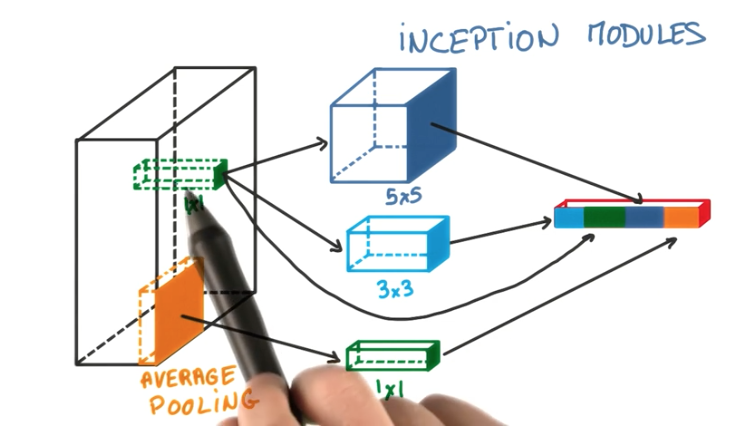 iNCEPTION MODULES
1x1
5x5
3x3
AVERAGE
POOLiNG
1x1